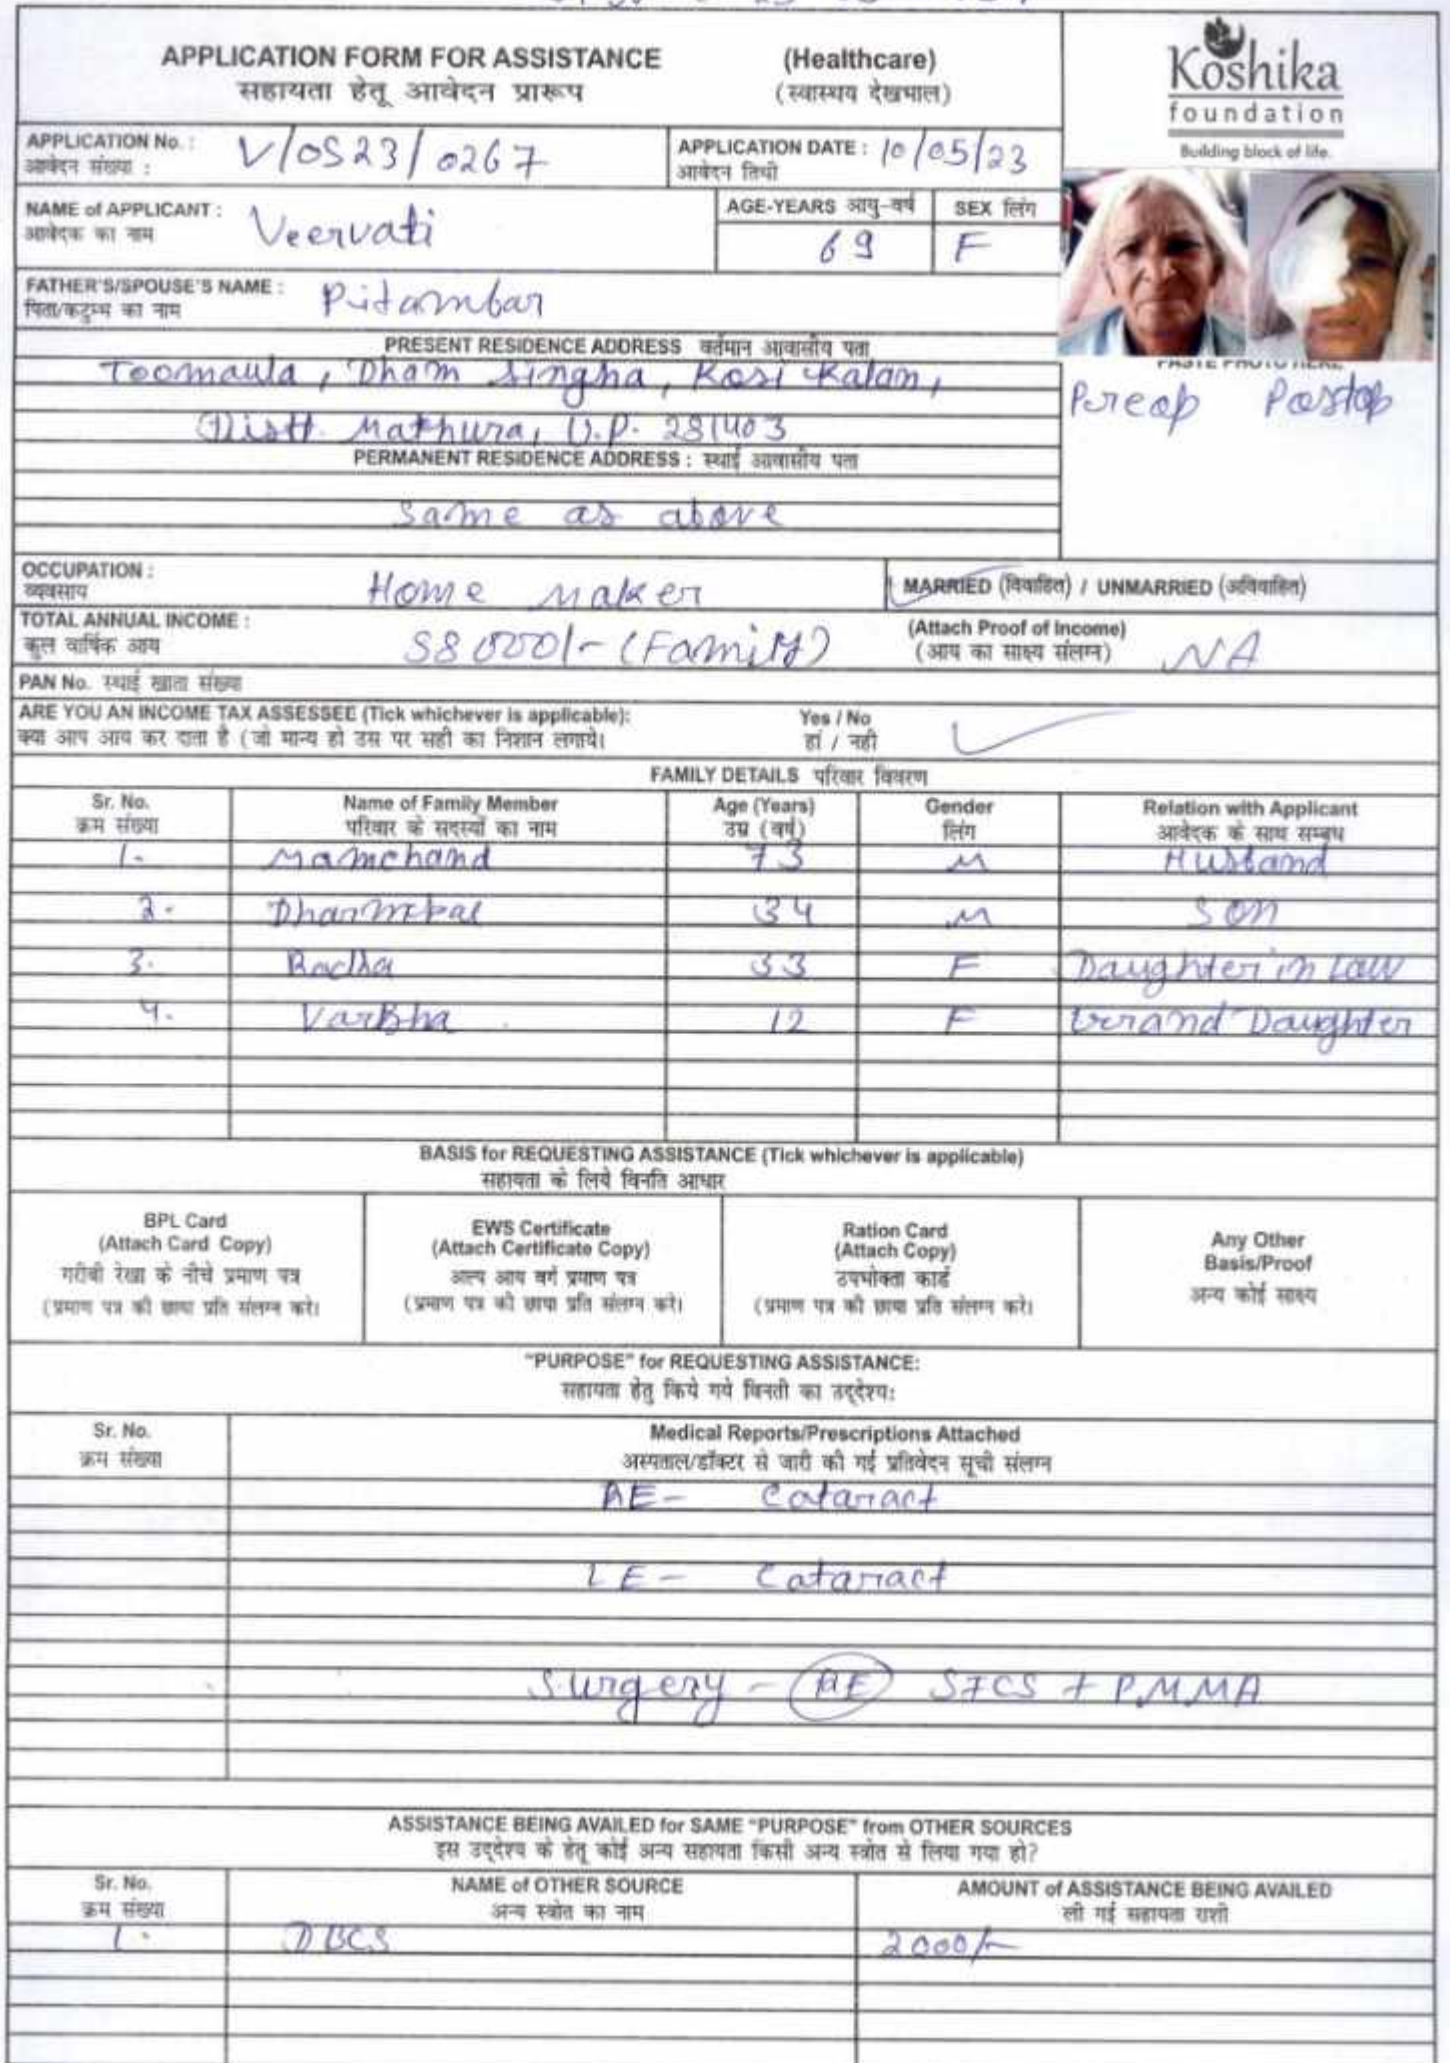 APPLICATION FORM FOR ASSISTANCE (Healthcare)
सहायता हेतू आवेदन प्रारूप (स्वास्थय देखभाल)
Koshika
foundation
Building block of life.
APPLICATION No. : V/0523/0267
आवेदन संख्या :
APPLICATION DATE : 10/05/23
आवेदन तिथी
NAME of APPLICANT : Veervati
आवेदक का नाम
AGE-YEARS आयु-वर्ष 69
SEX लिंग F
FATHER'S/SPOUSE'S NAME : Pitambar
पिता/कटुम्भ का नाम
PRESENT RESIDENCE ADDRESS वर्तमान आवासीय पता
Toomaula, Dham Singha, Kosi Kalan,
Distt. Mathura, U.P. 281403
PASTE PHOTO HERE
Preop Postop
PERMANENT RESIDENCE ADDRESS : स्थाई आवासीय पता
Same as above
OCCUPATION : Home Maker
व्यवसाय
MARRIED (विवाहित) / UNMARRIED (अविवाहित)
TOTAL ANNUAL INCOME : 58000/- (Family)
कुल वार्षिक आय
(Attach Proof of Income) NA
(आय का साक्ष्य संलग्न)
PAN No. स्थाई खाता संख्या
ARE YOU AN INCOME TAX ASSESSEE (Tick whichever is applicable): Yes / No
क्या आप आय कर दाता है (जो मान्य हो उस पर सही का निशान लगाये। हां / नही
FAMILY DETAILS परिवार विवरण
Sr. No. Name of Family Member Age (Years) Gender Relation with Applicant
क्रम संख्या परिवार के सदस्यों का नाम उम्र (वर्ष) लिंग आवेदक के साथ सम्बध
1. Mamchand 73 M Husband
2. Dharmpal 34 M Son
3. Radha 33 F Daughter in Law
4. Varsha 12 F Grand Daughter
BASIS for REQUESTING ASSISTANCE (Tick whichever is applicable)
सहायता के लिये विनति आधार
BPL Card
(Attach Card Copy)
गरीबी रेखा के नीचे प्रमाण पत्र
(प्रमाण पत्र की छाया प्रति संलग्न करे।
EWS Certificate
(Attach Certificate Copy)
अल्प आय वर्ग प्रमाण पत्र
(प्रमाण पत्र की छाया प्रति संलग्न करे।
Ration Card
(Attach Copy)
उपभोक्ता कार्ड
(प्रमाण पत्र की छाया प्रति संलग्न करे।
Any Other
Basis/Proof
अन्य कोई साक्ष्य
"PURPOSE" for REQUESTING ASSISTANCE:
सहायता हेतु किये गये विनती का उद्देश्य:
Sr. No. Medical Reports/Prescriptions Attached
क्रम संख्या अस्पताल/डॉक्टर से जारी की गई प्रतिवेदन सूची संलग्न
RE- Cataract
LE- Cataract
Surgery - RE SICS + PMMA
ASSISTANCE BEING AVAILED for SAME "PURPOSE" from OTHER SOURCES
इस उद्देश्य के हेतू कोई अन्य सहायता किसी अन्य स्त्रोत से लिया गया हो?
Sr. No. NAME of OTHER SOURCE AMOUNT of ASSISTANCE BEING AVAILED
क्रम संख्या अन्य स्त्रोत का नाम ली गई सहायता राशी
1. DBCS 2000/-